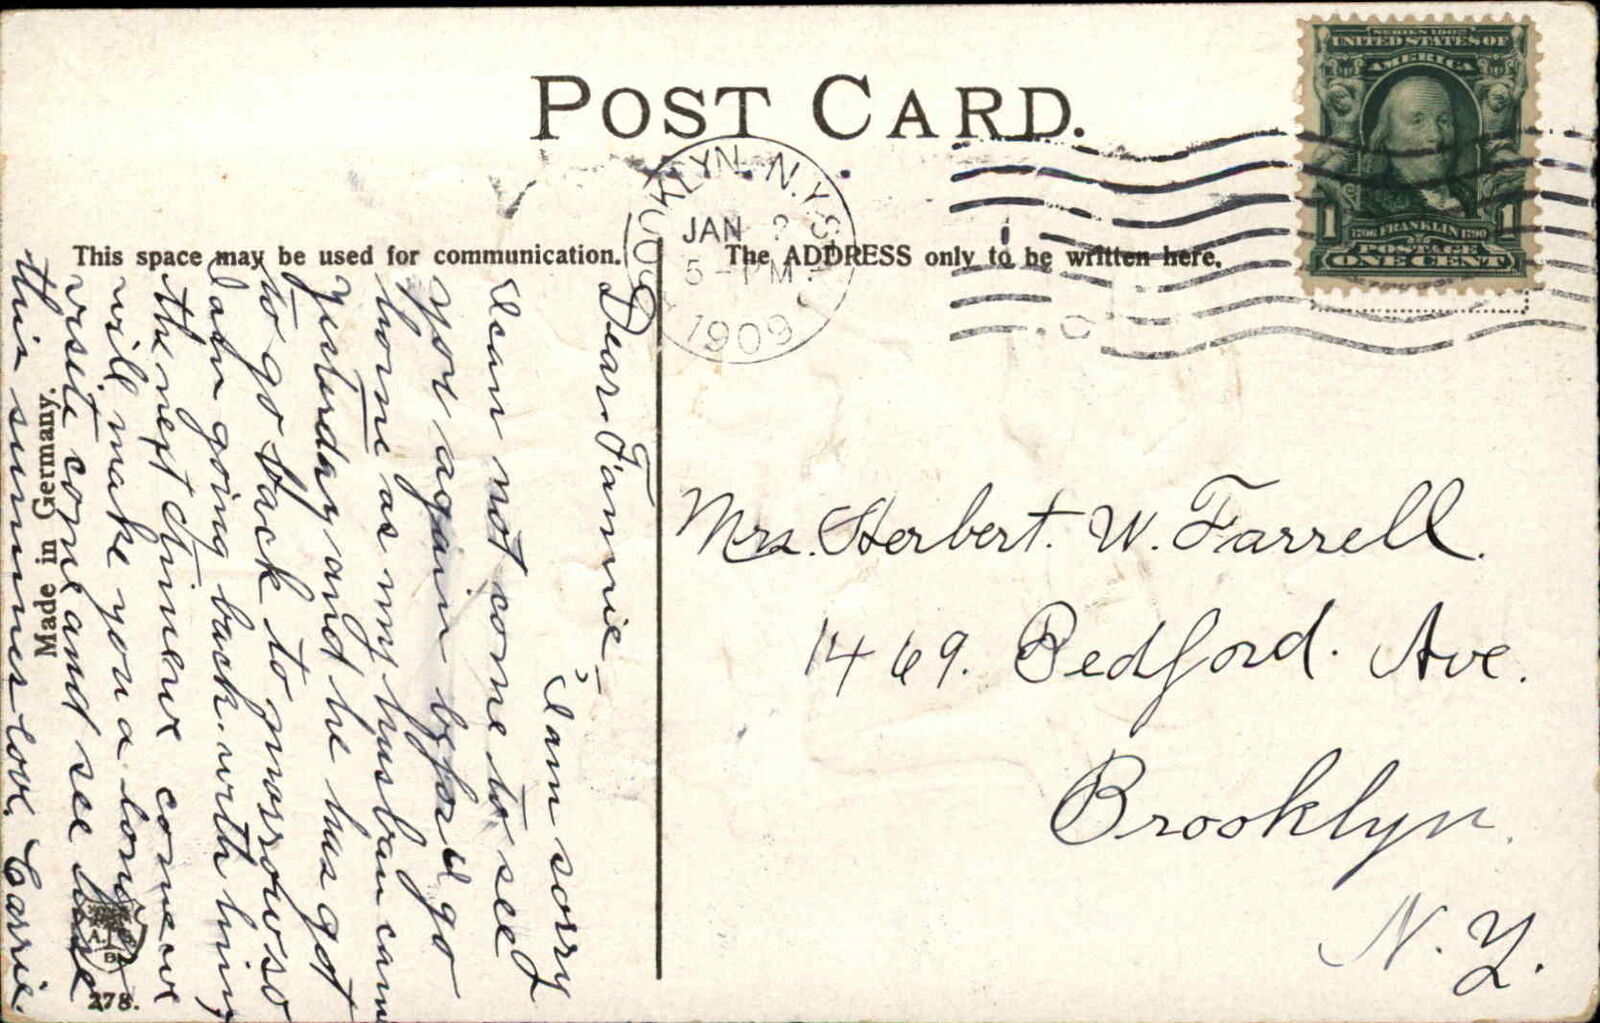 POST CARD.
SERIES 1902
UNITED STATES OF
AMERICA
1 1
1706 FRANKLIN 1790
POSTAGE
ONE CENT
KLYN. N.Y.
JAN
5 - PM
1909
This space may be used for communication.
The ADDRESS only to be written here.
Dear Fannie
I am sorry
I can not come to see
you again before I go
home as my husban came
yesturday and he has got
to go back to morrow so
I am going back with him
the next time we come we
will make you a long
visite come and see
this summer love. Carrie.
Mrs. Herbert. W. Farrell.
1469. Bedford. Ave.
Brooklyn.
N. Y.
Made in Germany.
278.